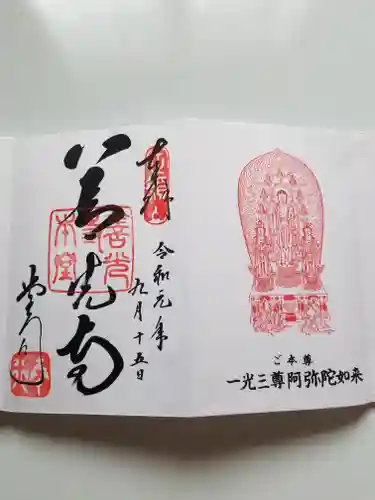 奉拝
令和元年
九月十五日
善光寺
善光
本堂
ご本尊
一光三尊阿弥陀如来